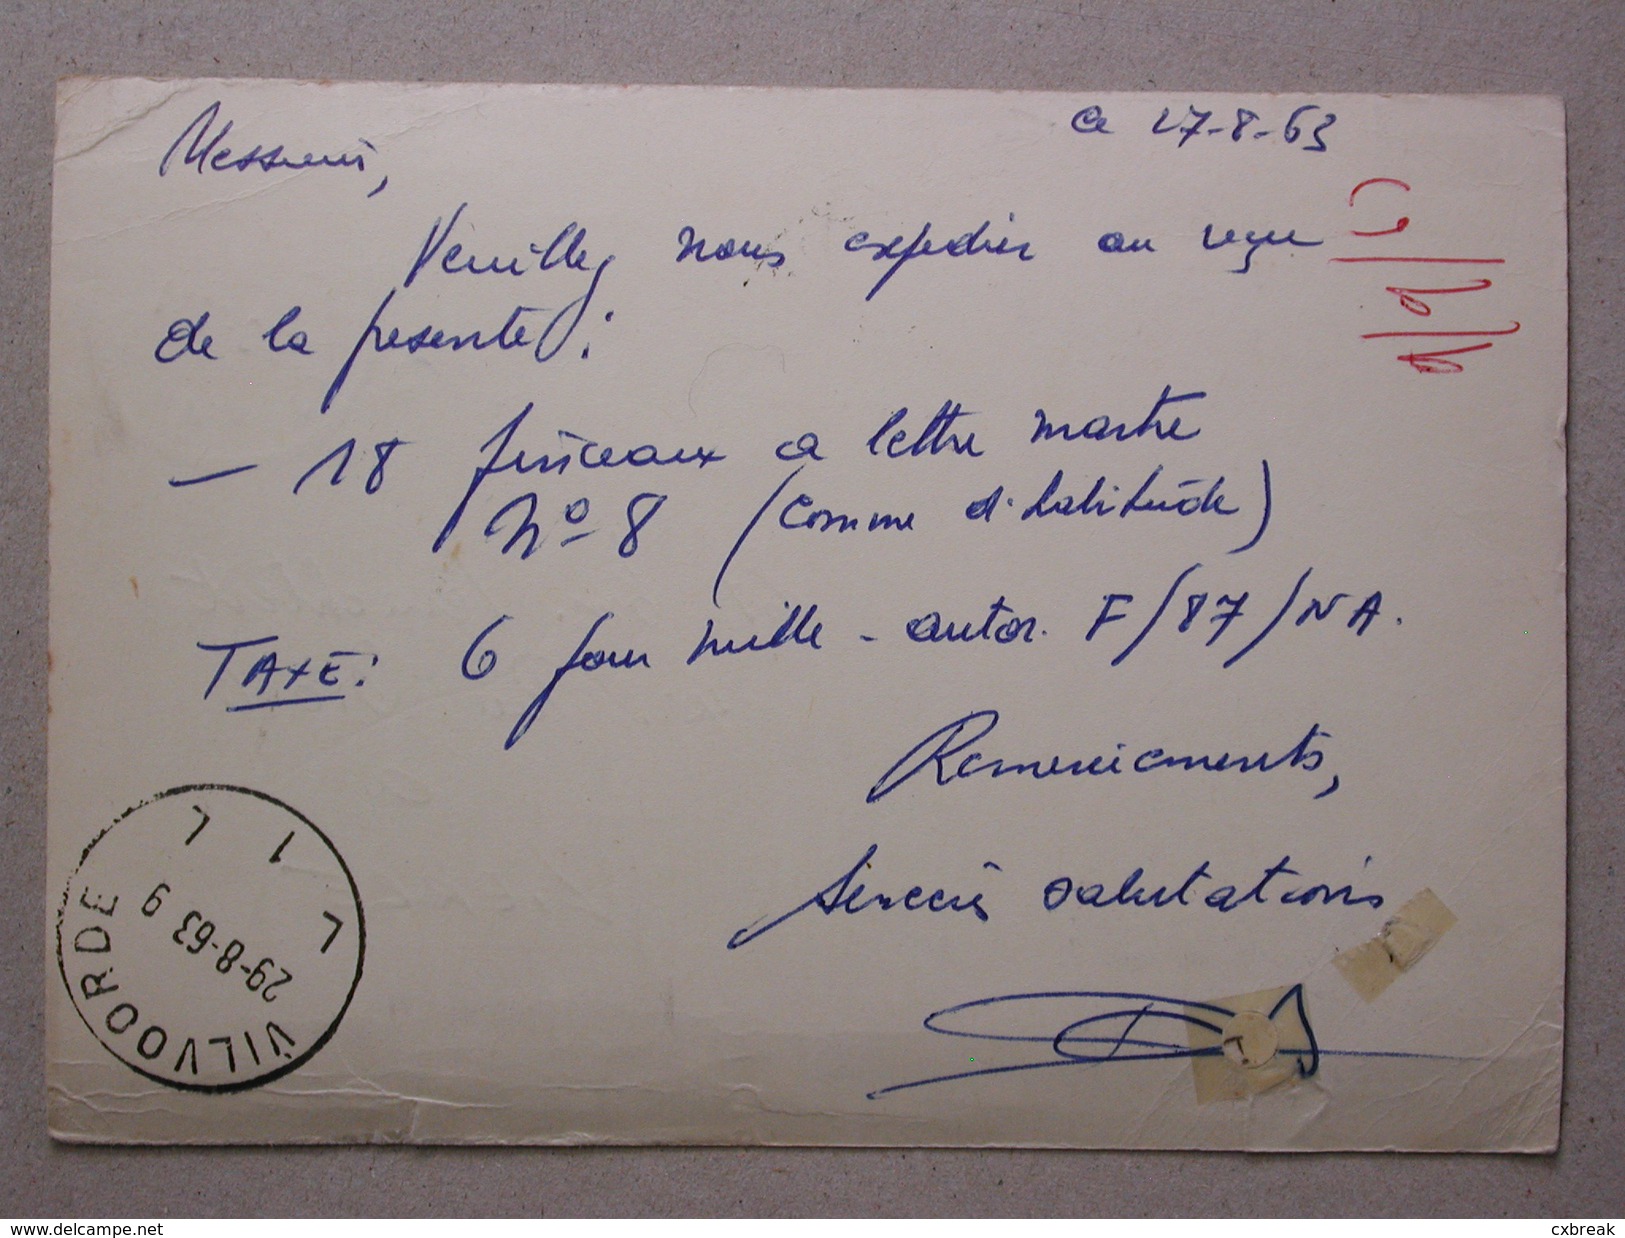 ce 27-8-63
Messieurs,
Veuillez nous expedier au reçu
de la presente :
- 18 pinceaux a lettre martre
Nº 8 (comme d'habitude)
TAXE: 6 pour mille - autor. F/87/NA.
Remerciements,
Sincères salutations
VILVOORDE
29-8-63 9
L 1 L
L
www.delcampe.net
cxbreak